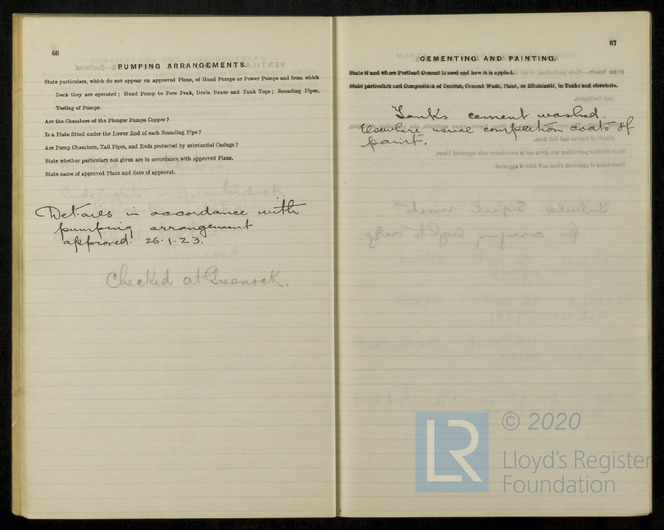 66
PUMPING ARRANGEMENTS.
State particulars, which do not appear on approved Plans, of Hand Pumps or Power Pumps and from which
Deck they are operated; Hand Pump to Fore Peak, Drain Boxes and Tank Tops; Sounding Pipes,
Testing of Pumps.
Are the Chambers of the Plunger Pumps Copper?
Is a Plate fitted under the Lower End of each Sounding Pipe?
Are Pump Chambers, Tail Pipes, and Rods protected by substantial Casings?
State whether particulars not given are in accordance with approved Plans.
State name of approved Plans and date of approval.
Details in accordance with
pumping arrangement
approved. 26.1.23.
Checked at Greenock.
67
CEMENTING AND PAINTING.
State if and where Portland Cement is used and how it is applied.
State particulars and Composition of Cement, Cement Wash, Paint, or Bitumastic, in Tanks and elsewhere.
Tanks cement washed.
Elsewhere usual completion coats of
paint.
LR
© 2020
Lloyd's Register
Foundation